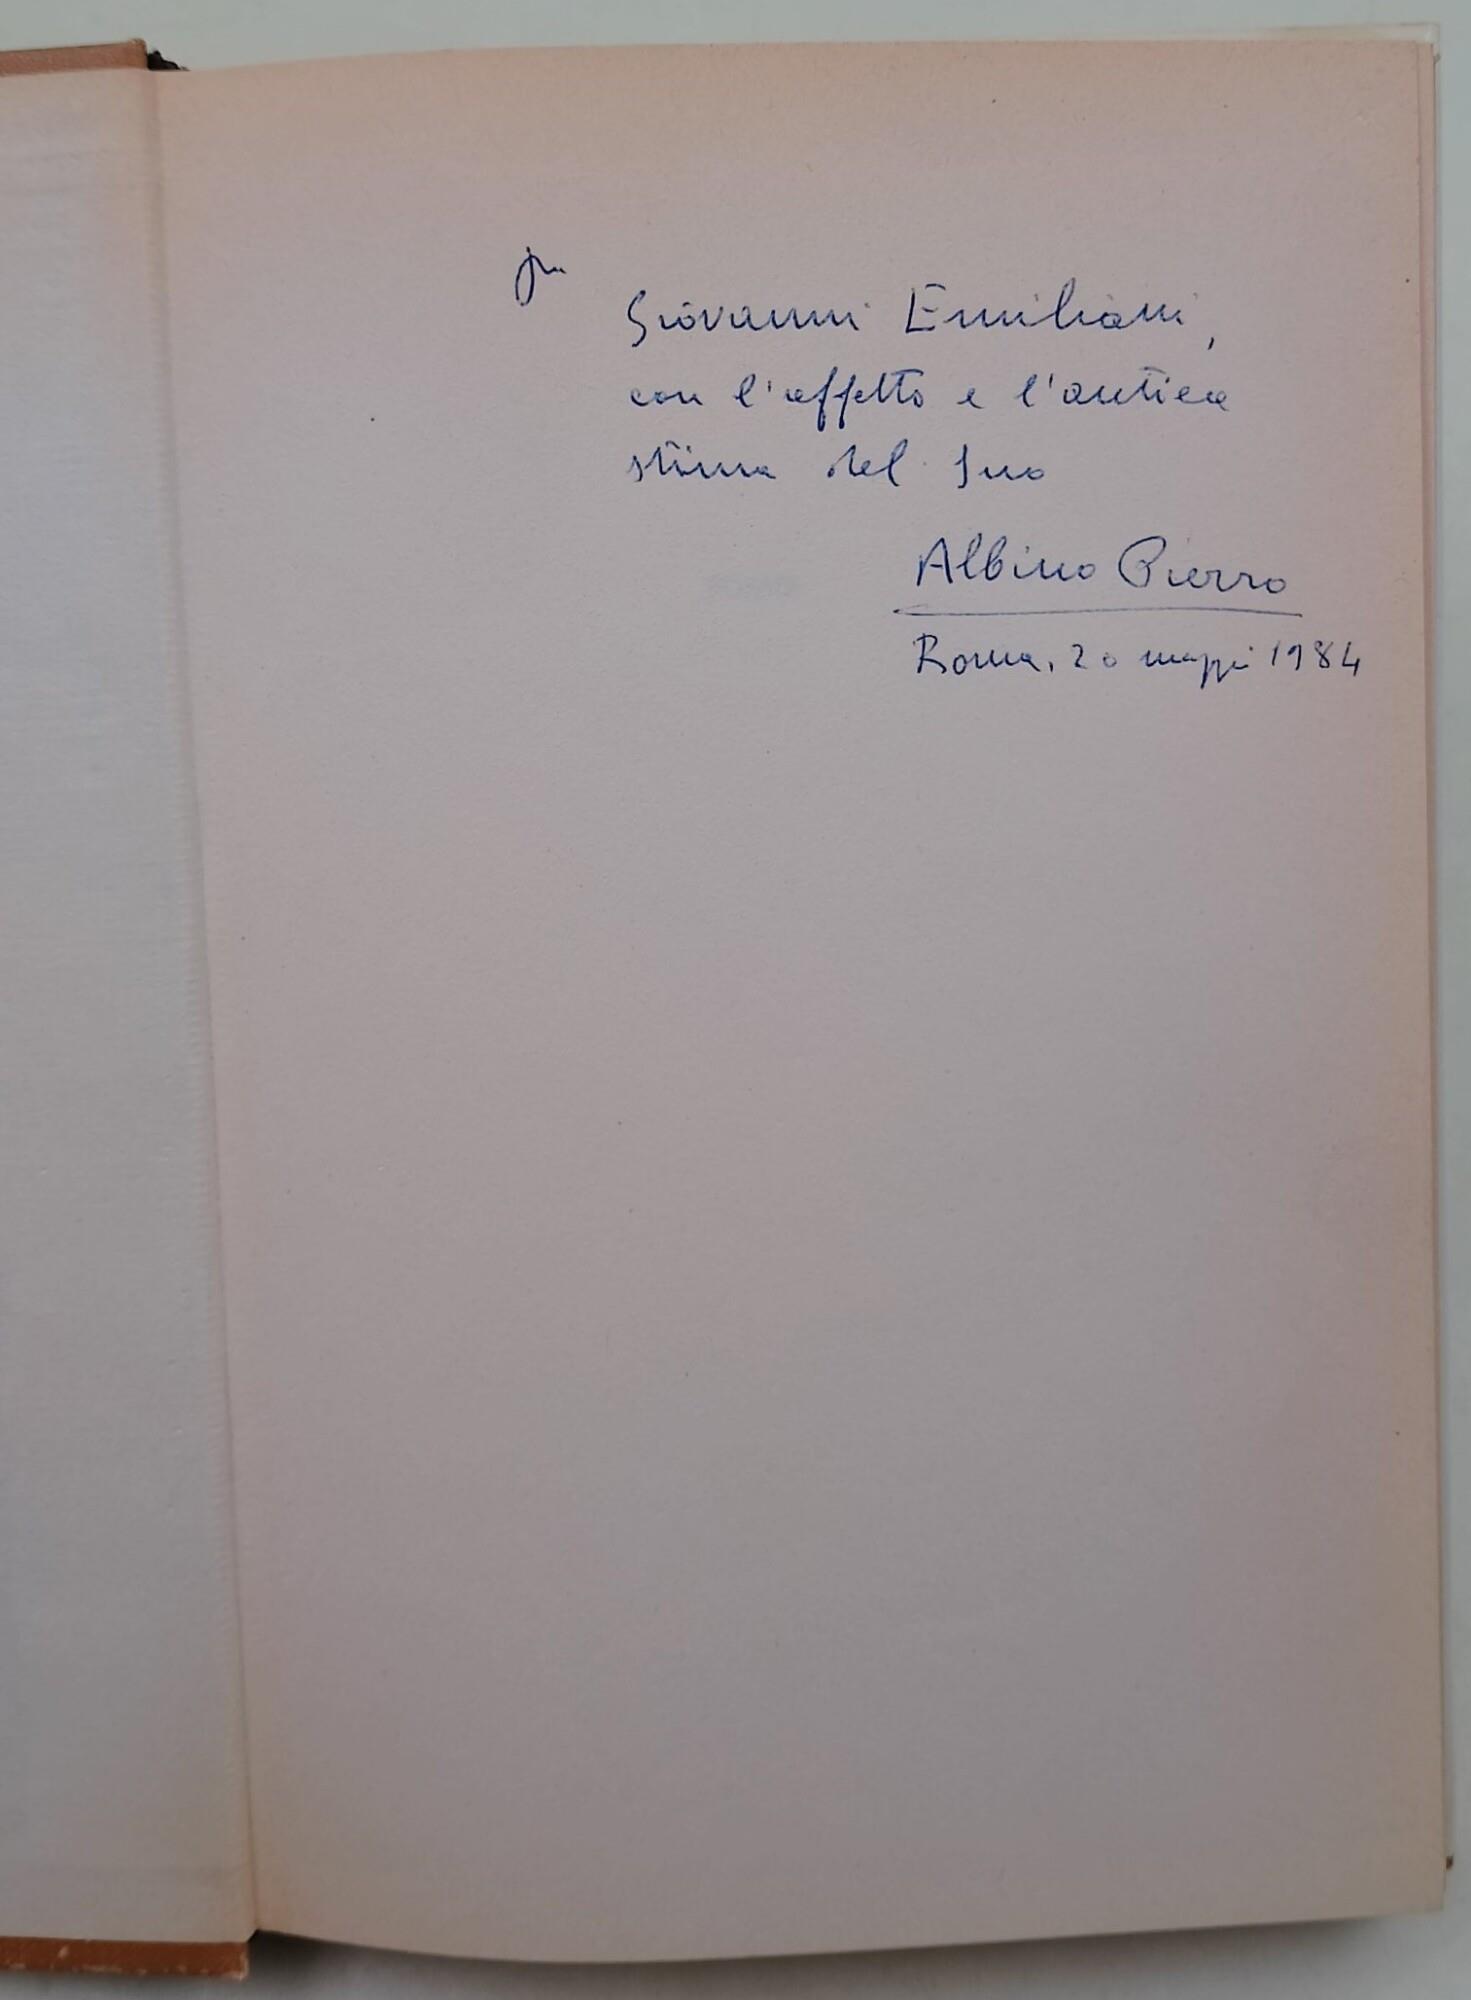 per
Giovanni Emiliani,
con l'affetto e l'antica
stima del Suo
Albino Pierro
Roma, 20 maggio 1984